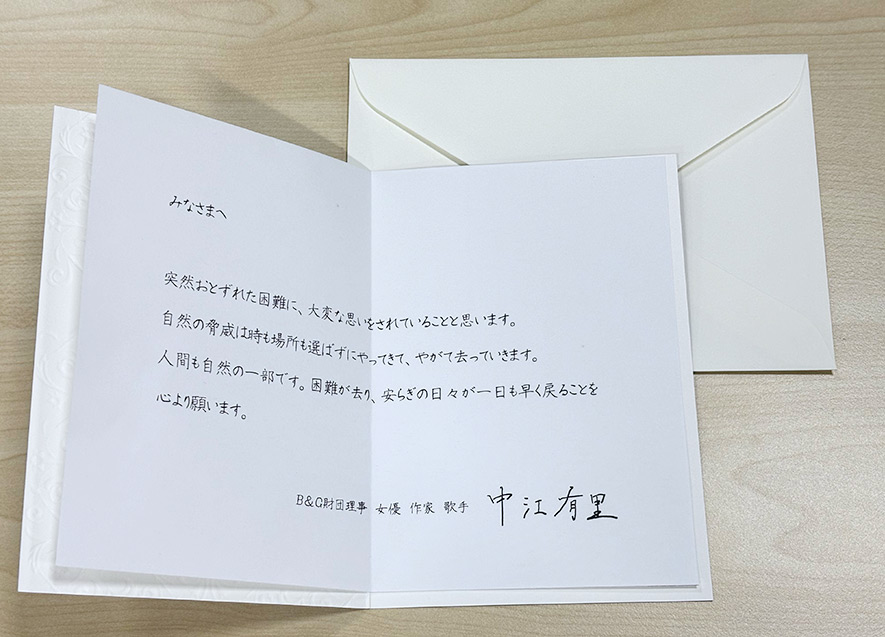 みなさまへ
突然おとずれた困難に、大変な思いをされていることと思います。
自然の脅威は時も場所も選ばずにやってきて、やがて去っていきます。
人間も自然の一部です。困難が去り、安らぎの日々が一日も早く戻ることを
心より願います。
B&G財団理事 女優 作家 歌手 中江有里